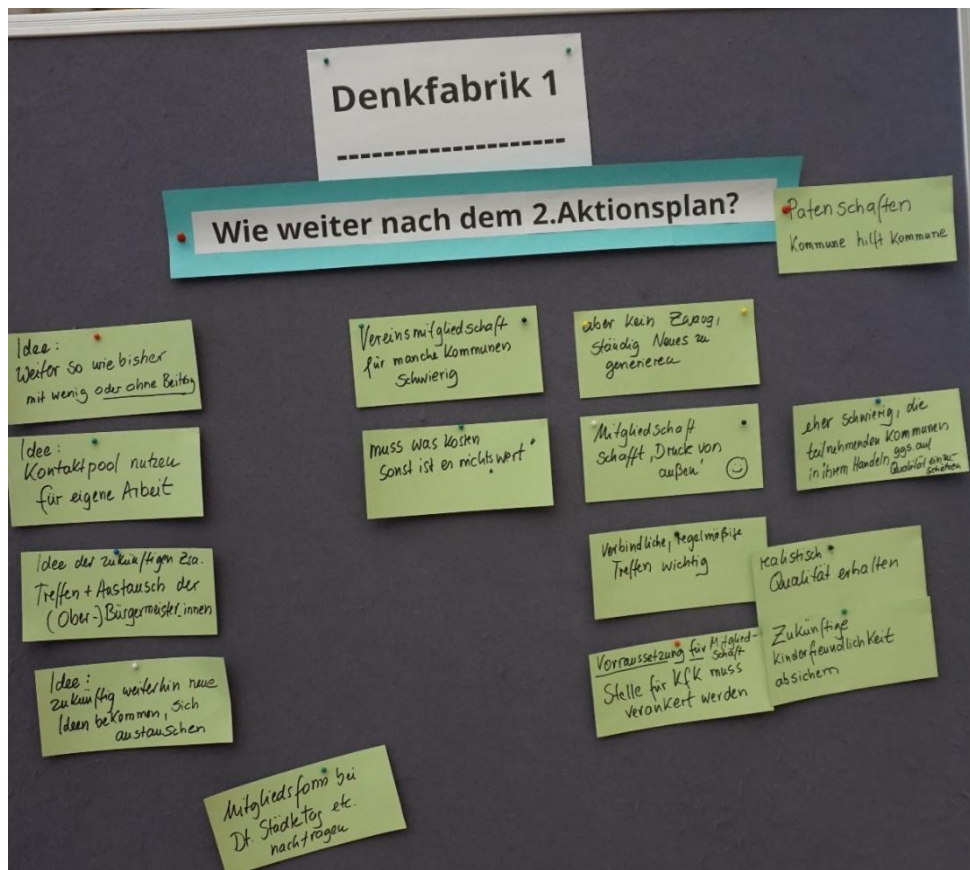 Denkfabrik 1
--------------------
Wie weiter nach dem 2.Aktionsplan?
Patenschaften
Kommune hilft Kommune
Idee:
Weiter so wie bisher
mit wenig oder ohne Beitrag
Idee:
Kontaktpool nutzen
für eigene Arbeit
Idee der zukünftigen Zsa.
Treffen + Austausch der
(Ober-) Bürgermeister_innen
Idee:
zukünftig weiterhin neue
Ideen bekommen, sich
austauschen
Mitgliedsform bei
Dt. Städtetag etc.
nachfragen
Vereinsmitgliedschaft
für manche Kommunen
schwierig
muss was kosten
sonst ist es nichts wert"
aber kein Zwang,
ständig Neues zu
generieren
Mitgliedschaft
schafft 'Druck von
außen'
Verbindliche, regelmäßige
Treffen wichtig
Vorraussetzung für Mitglied-
schaft
Stelle für KfK muss
verankert werden
eher schwierig, die
teilnehmenden Kommunen
in ihrem Handeln ggs. auf
Qualität einzu-
schätzen
realistisch
Qualität erhalten
Zukünftige
kinderfreundlichkeit
absichern